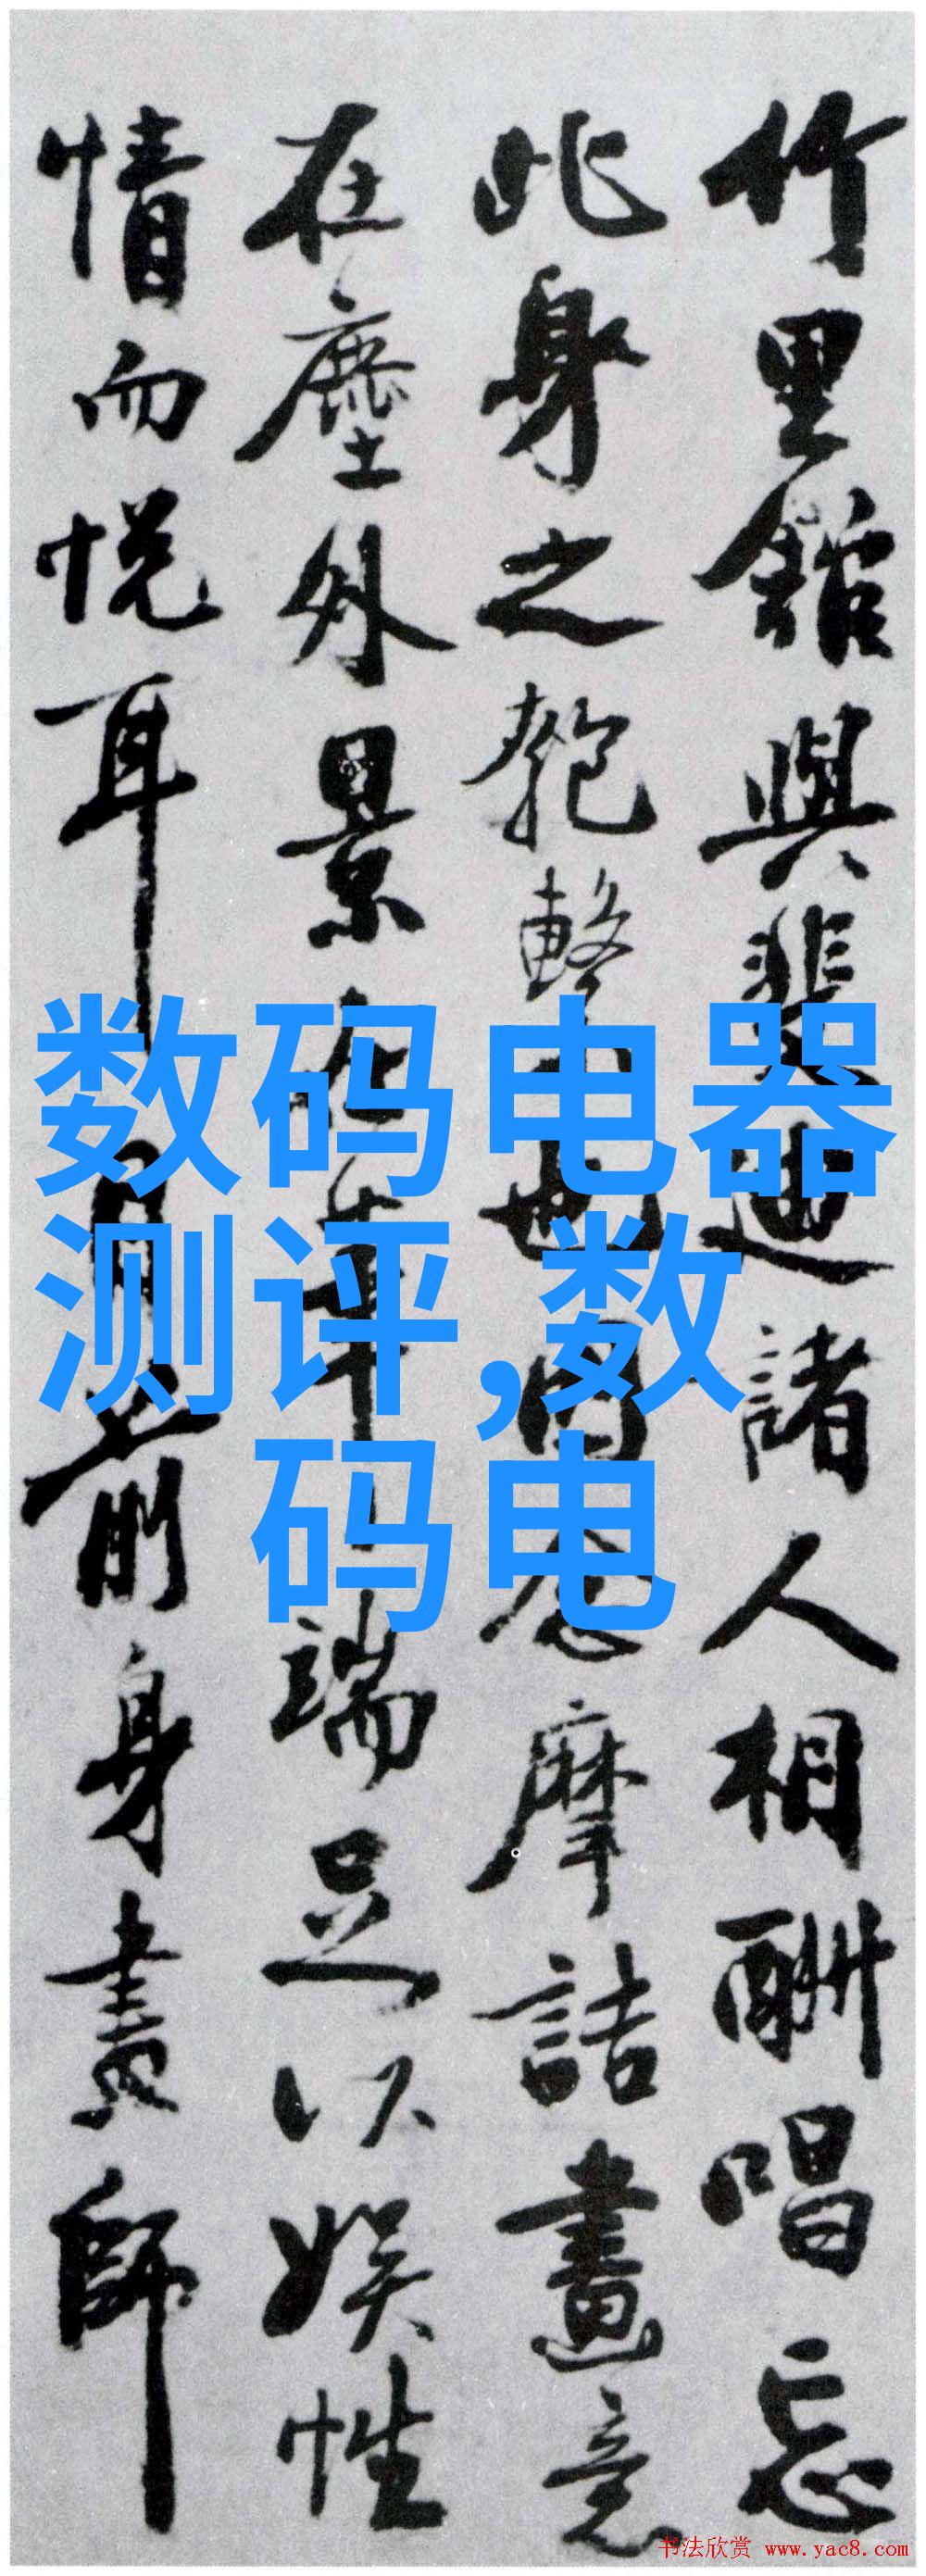 竹里館與裴迪諸人相酬唱忘
此身之匏繫也因念摩詰畫意
在塵外景在筆端足以娛性
情而悅耳目前身畫師
数码电器
测评,数
码电
书法欣赏 www.yac8.com